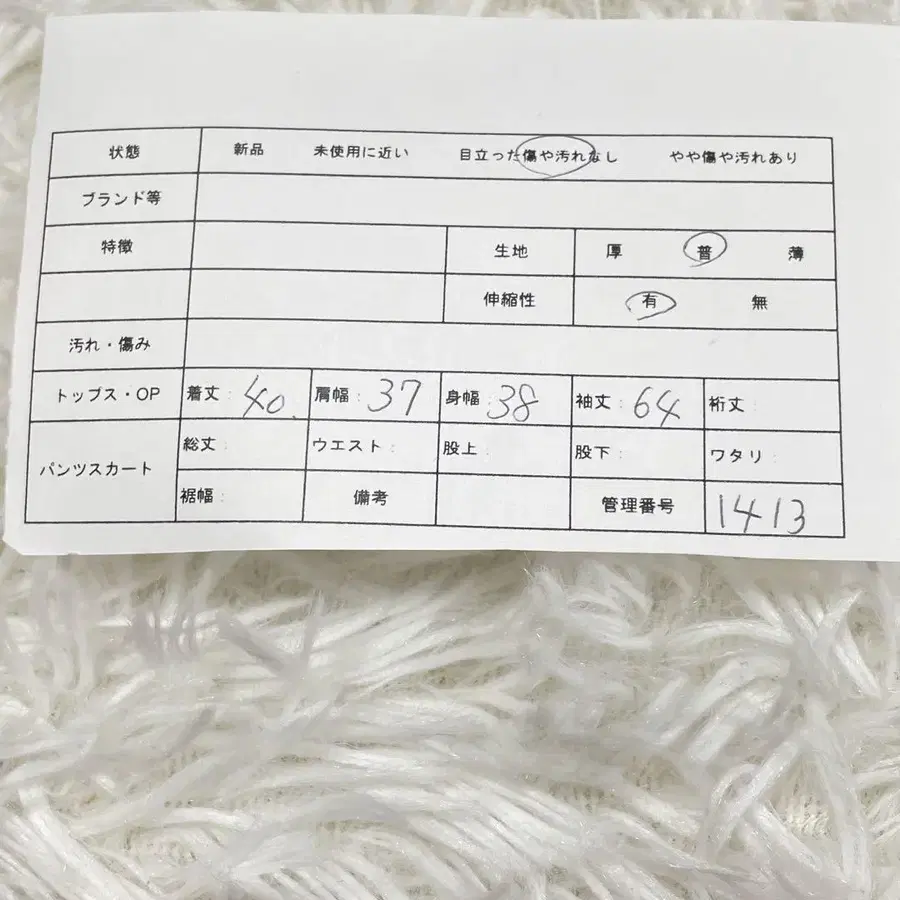 状態 新品 未使用に近い 目立った傷や汚れなし やや傷や汚れあり
ブランド等
特徴 生地 厚 普 薄
伸縮性 有 無
汚れ・傷み
トップス・OP 着丈: 40. 肩幅: 37 身幅: 38 袖丈: 64 裄丈:
パンツスカート 総丈: ウエスト: 股上: 股下: ワタリ:
裾幅: 備考 管理番号 1413